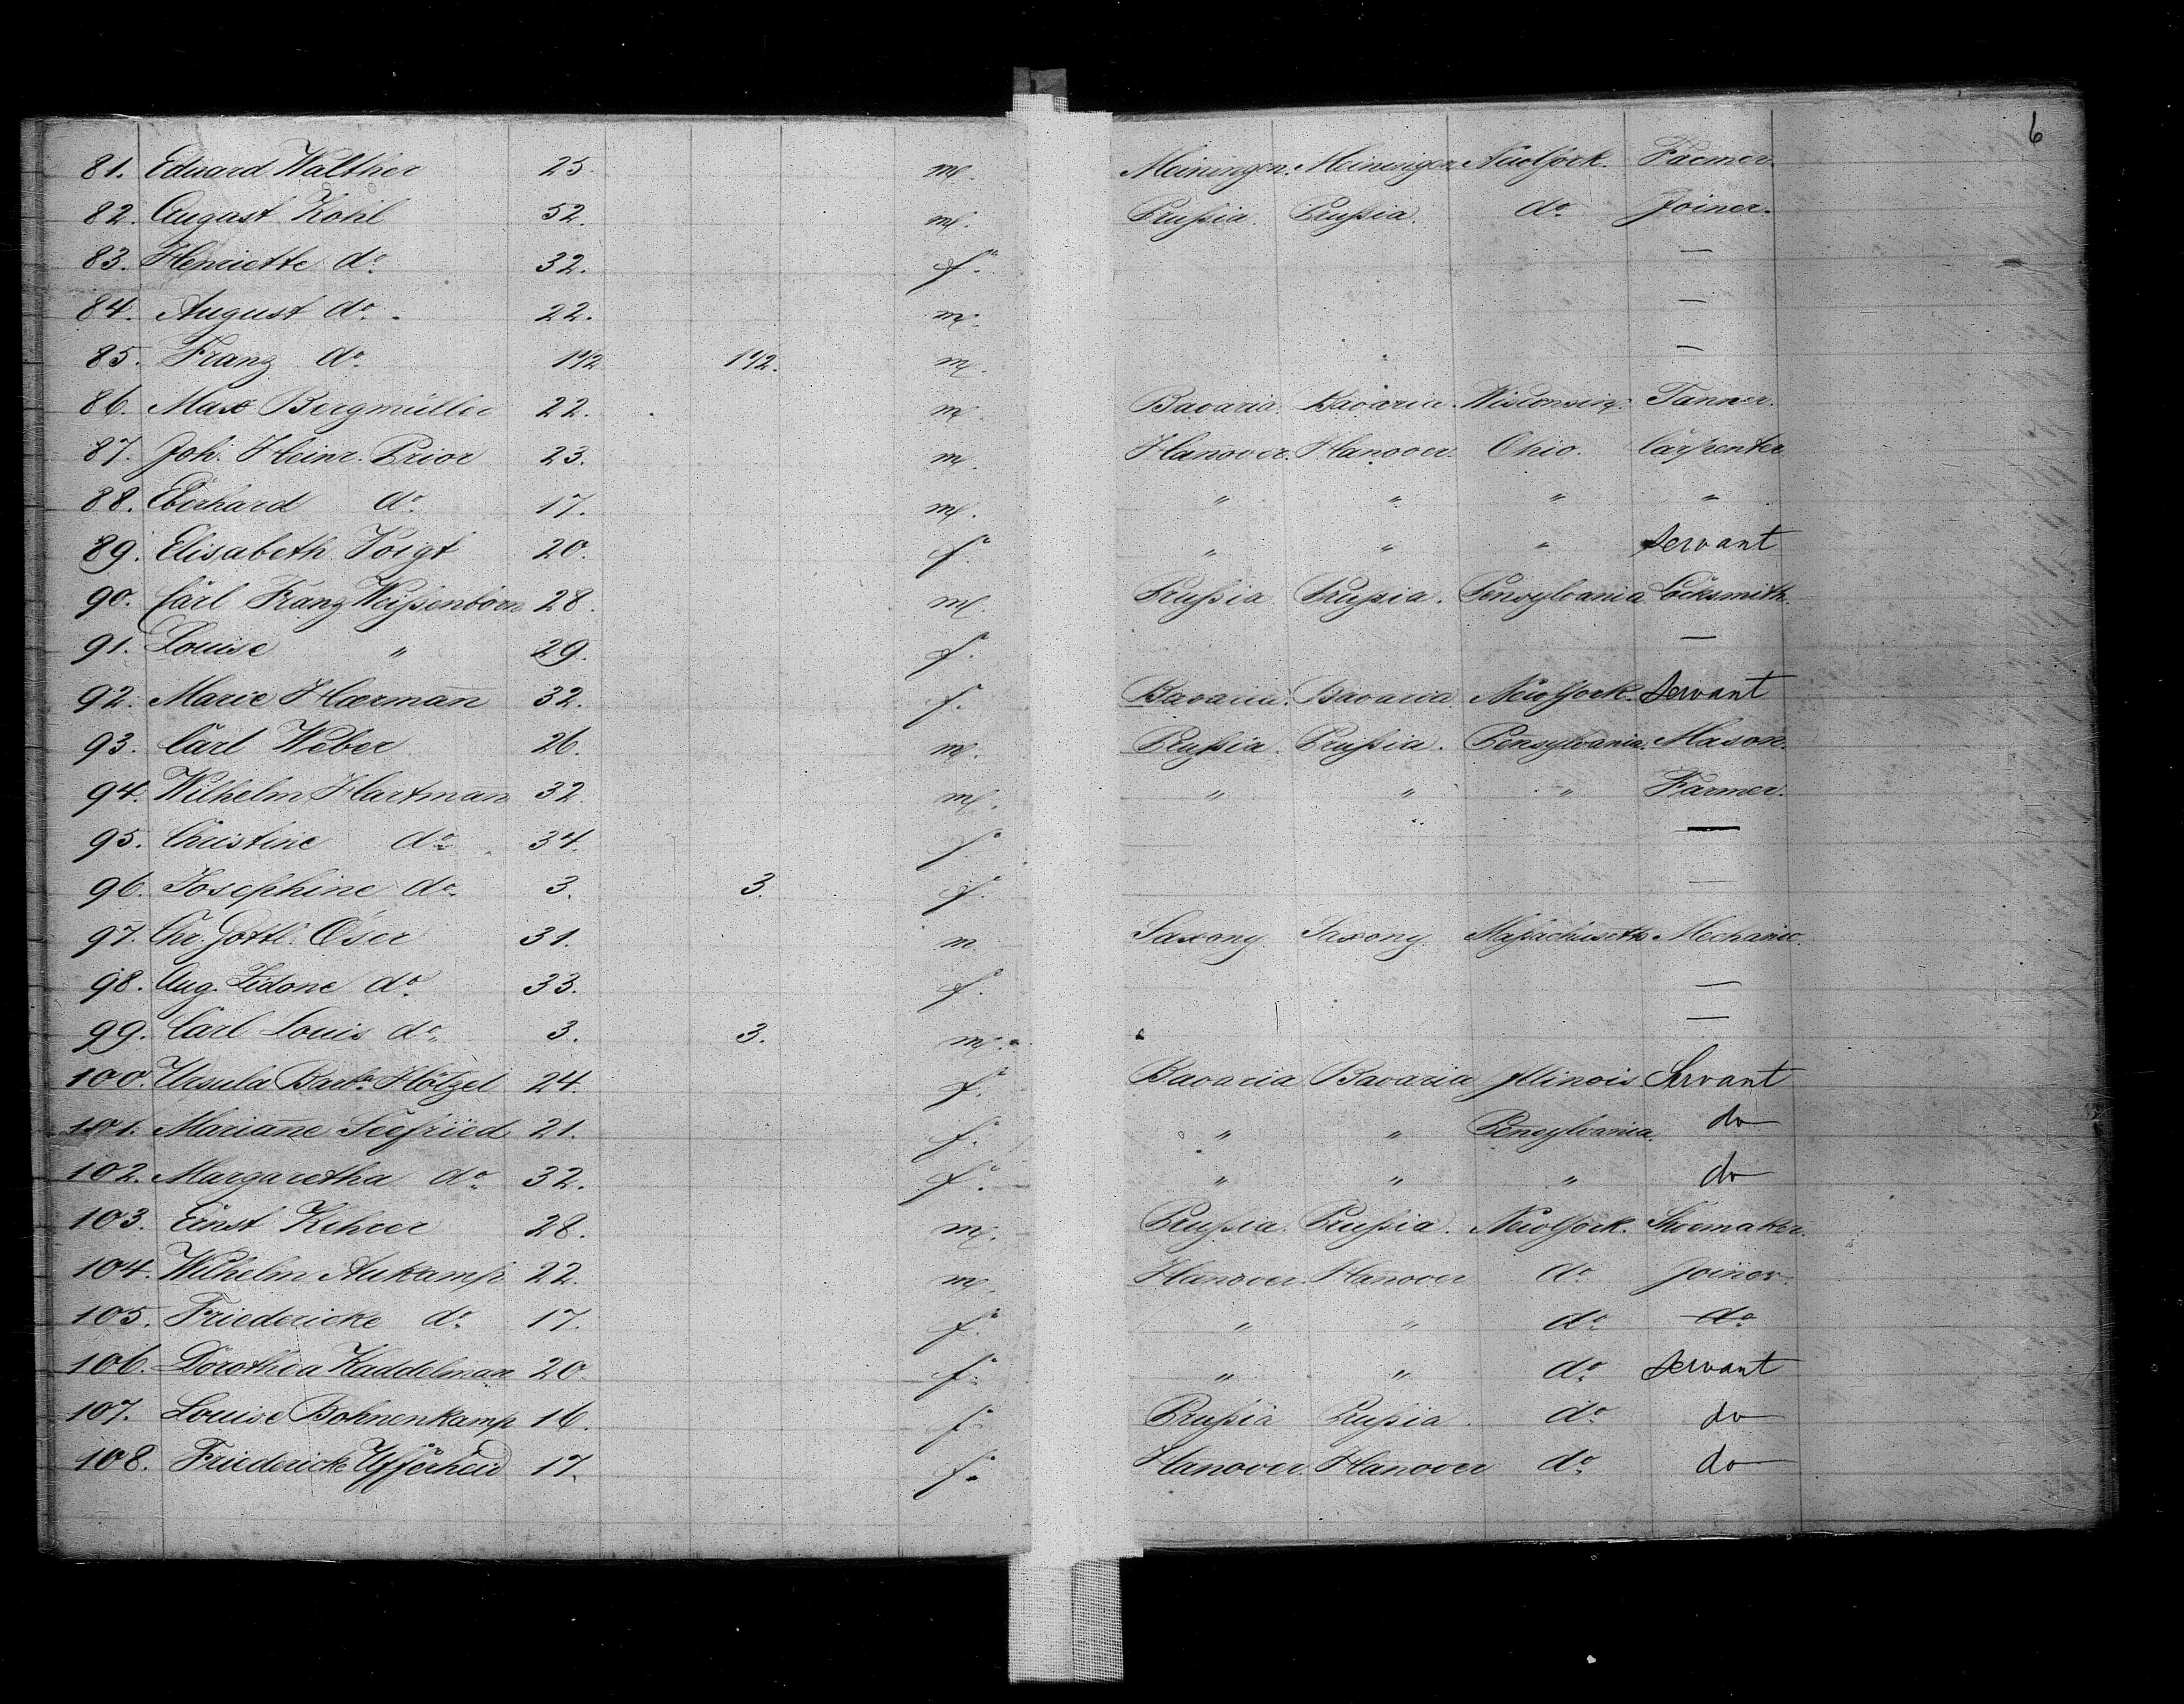 6
81. Eduard Walther 25. m. Meiningen. Meiningen. NewYork. Farmer.
82. August Kohl 52. m. Prußia. Prußia. do Joiner.
83. Henriette do 32. f. —
84. August do. 22. m. —
85. Franz do. 1 1/2 1 1/2. m. —
86. Max Bergmüller 22. m. Bavaria. Bavaria. Wisconsin. Tanner.
87. Joh. Heinr. Prior 23. m. Hanover. Hanover. Ohio. Carpenter
88. Eberhard do. 17. m. " " " "
89. Elisabeth Voigt 20. f. " " " servant
90. Carl Franz Weißenborn 28. m. Prußia Prußia. Pensylvania Locksmith.
91. Louise " 29. f. —
92. Marie Haerman 32. f. Bavaria. Bavaria NewYork. servant
93. Carl Weber 26. m. Prußia. Prußia. Pensylvania. Mason.
94. Wilhelm Hartman 32 m. " " " Farmer.
95. Christine do. 34. f. —
96. Josephine do. 3. 3. f. —
97. Chr. Gottl. Oser 31. m Saxony Saxony Maßachusetts Mechanic.
98. Aug. Sidone do. 33. f. —
99. Carl Louis do. 3. 3. m. —
100. Ursula Barb. Hötzel 24. f. Bavaria Bavaria Illinois. Servant
101. Mariane Seefried 21. f. " " Pensylvania. do
102. Margaretha do. 32. f. " " " do
103. Ernst Kehrer 28. m. Prußia. Prußia. NewYork. Shoemaker.
104. Wilhelm Aukamp 22. m. Hanover. Hanover do Joiner.
105. Friedericke do. 17. f. " " do. do
106. Dorothea Kaddelman 20. f. " " do. servant
107. Louise Bohnenkamp 16. f. Prußia Prußia. do. do
108. Friedericke 17. f. Hanover. Hanover do. do